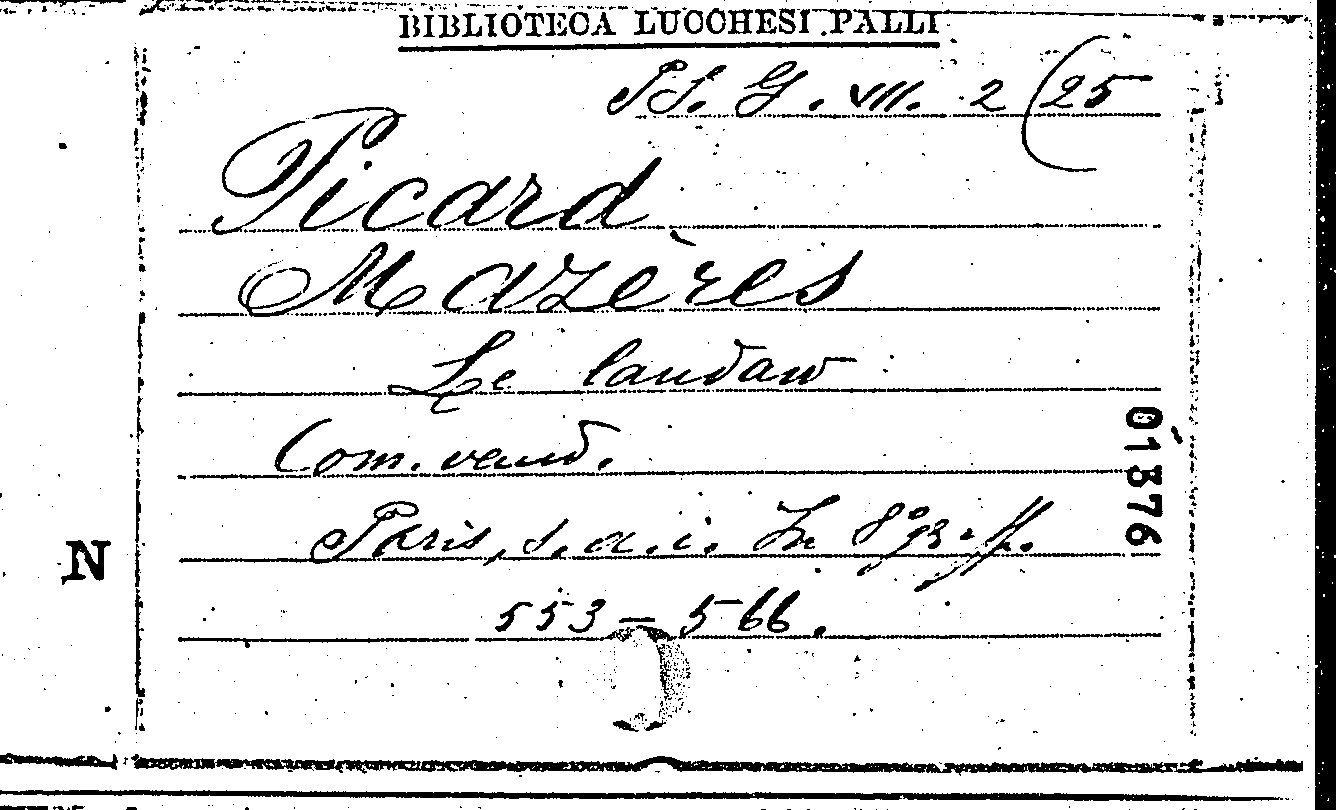 BIBLIOTECA LUCCHESI PALLI
G. VII. 2 (25
Picard
Mazères
Le landaw
Com. vaud.
Paris, s. a. i. In 8° gr. ff.
553 – 566.
01376
N